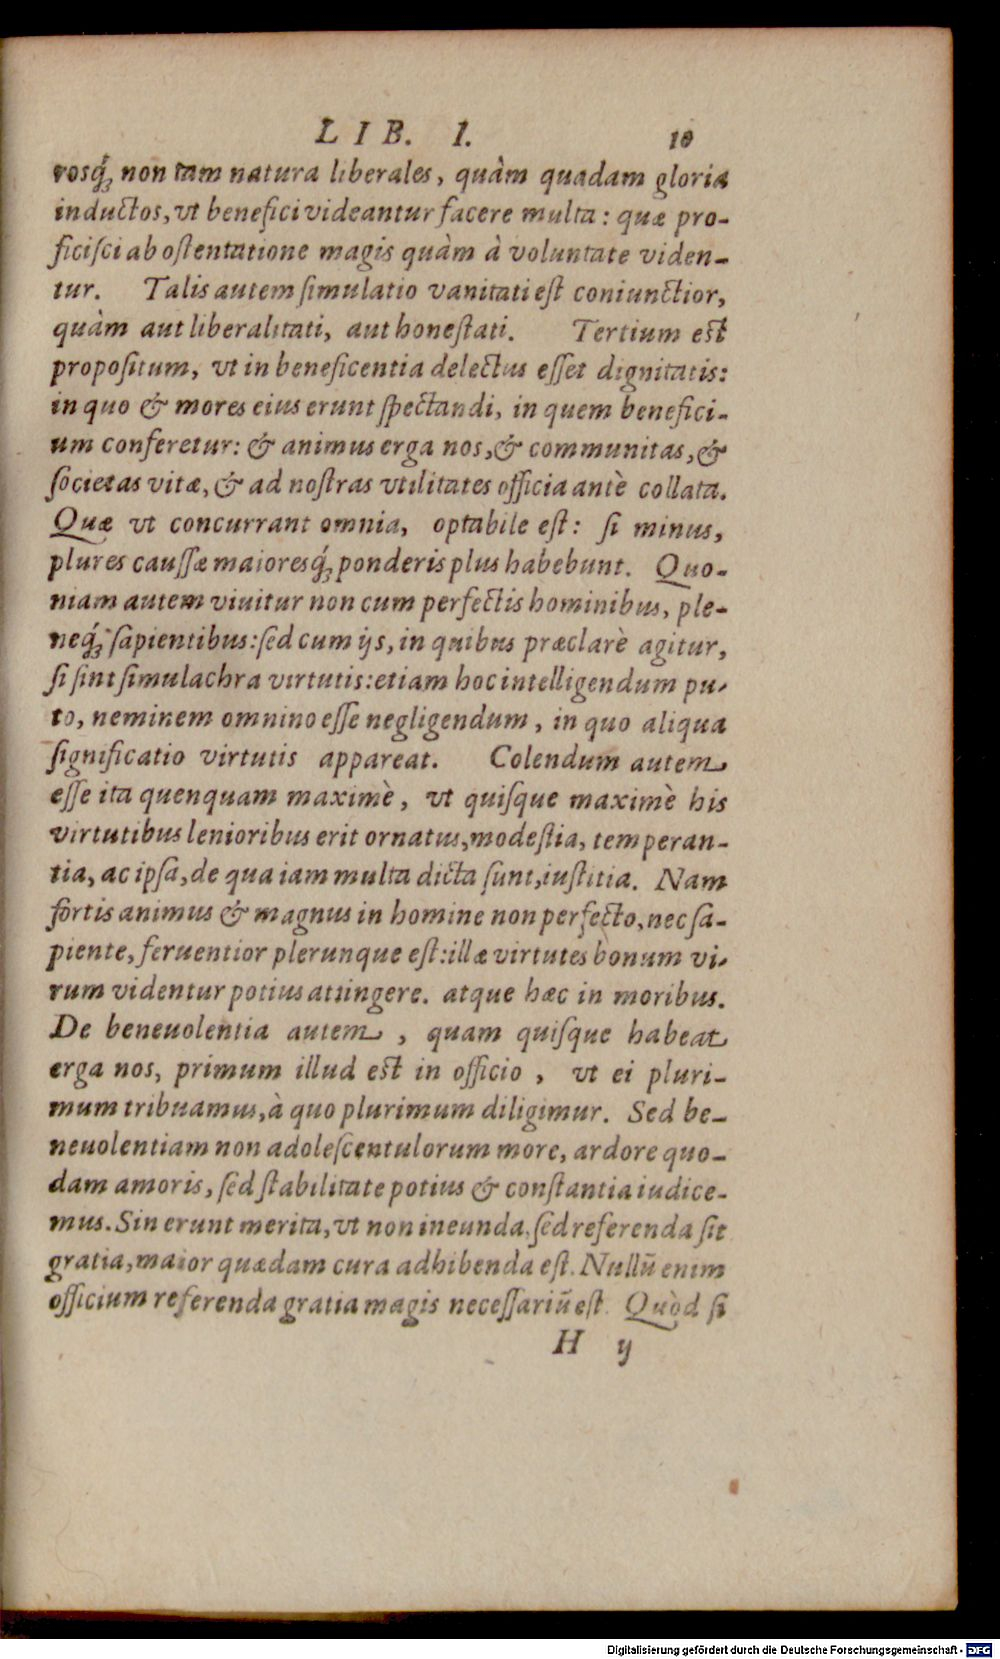 LIB. I. 10
rosq́; non tam natura liberales, quàm quadam gloria
inductos, vt benefici videantur facere multa: quæ pro-
ficiſci ab oſtentatione magis quàm à voluntate viden-
tur. Talis autem ſimulatio vanitati eſt coniunctior,
quàm aut liberalitati, aut honeſtati. Tertium eſt
propoſitum, vt in beneficentia delectus eſſet dignitatis:
in quo & mores eius erunt ſpectandi, in quem benefici-
um conferetur: & animus erga nos, & communitas, &
ſocietas vitæ, & ad noſtras vtilitates officia antè collata.
Quæ vt concurrant omnia, optabile eſt: ſi minus,
plures cauſſæ maioresq́; ponderis plus habebunt. Quo-
niam autem viuitur non cum perfectis hominibus, ple-
neq́; ſapientibus: ſed cum ijs, in quibus præclarè agitur,
ſi ſint ſimulachra virtutis: etiam hoc intelligendum pu-
to, neminem omnino eſſe negligendum, in quo aliqua
ſignificatio virtutis appareat. Colendum autem
eſſe ita quenquam maximè, vt quiſque maximè his
virtutibus lenioribus erit ornatus, modeſtia, temperan-
tia, ac ipſa, de qua iam multa dicta ſunt, iuſtitia. Nam
fortis animus & magnus in homine non perfecto, nec ſa-
piente, feruentior plerunque eſt: illæ virtutes bonum vi-
rum videntur potius attingere. atque hæc in moribus.
De beneuolentia autem, quam quiſque habeat
erga nos, primum illud eſt in officio, vt ei pluri-
mum tribuamus, à quo plurimum diligimur. Sed be-
neuolentiam non adoleſcentulorum more, ardore quo-
dam amoris, ſed ſtabilitate potius & conſtantia iudice-
mus. Sin erunt merita, vt non ineunda, ſed referenda ſit
gratia, maior quædam cura adhibenda eſt. Nullũ enim
officium referenda gratia magis neceſſariũ eſt. Quòd ſi
H ij
Digitalisierung gefördert durch die Deutsche Forschungsgemeinschaft - DFG